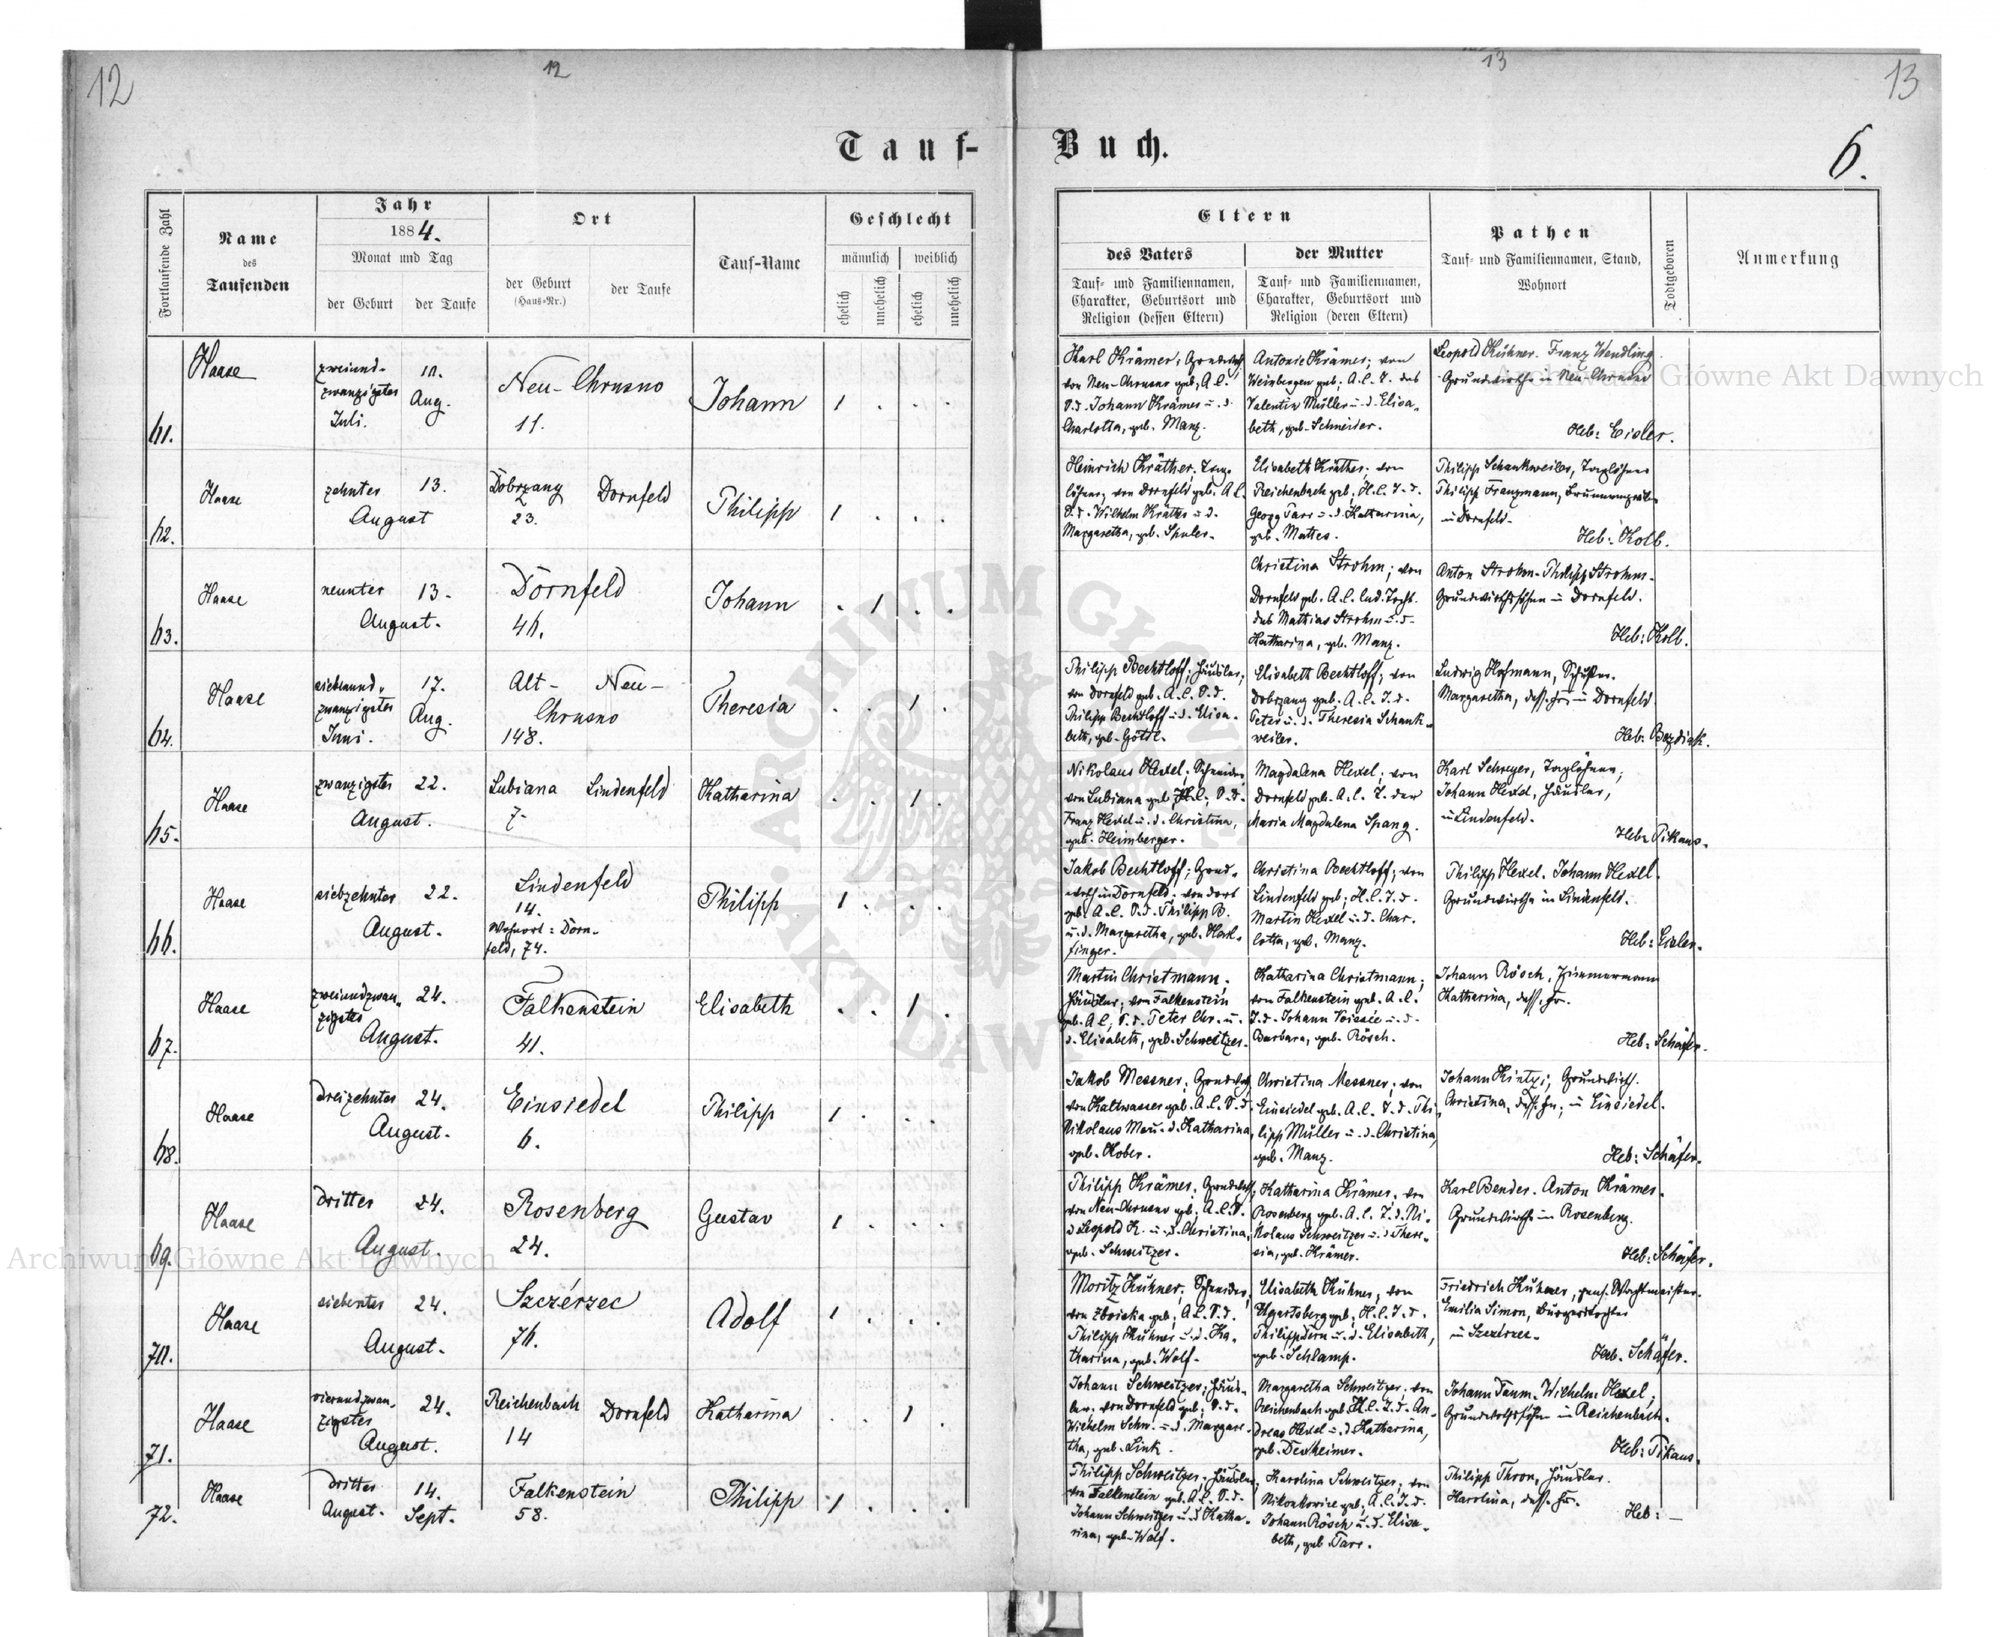 12
12
13
13
Tauf-
Buch.
6.
Fortlaufende Zahl
Name
des
Taufenden
Jahr
1884.
Monat und Tag
der Geburt
der Taufe
Ort
der Geburt
(Haus-Nr.)
der Taufe
Tauf-Name
Geschlecht
männlich
weiblich
ehelich
unehelich
ehelich
unehelich
Eltern
des Vaters
der Mutter
Tauf- und Familiennamen,
Charakter, Geburtsort und
Religion (dessen Eltern)
Tauf- und Familiennamen,
Charakter, Geburtsort und
Religion (deren Eltern)
Pathen
Tauf- und Familiennamen, Stand,
Wohnort
Todtgeboren
Anmerkung
61.
Haase
zweiund-
zwanzigster
Juli.
10.
Aug.
Neu-Chrusno
11.
Johann
1 . . .
Karl Krämer;
von Neu-Chrusno geb; A.C.
S.d. Johann Krämer u. d.
Charlotta, geb. Manz.
Antonie Krämer; von
Weinbergen geb; A.C. T. des
Valentin Müller u. d. Elisa-
beth, geb. Schneider.
Leopold Kühner. Franz Wendling
Grundwirthe in Neu-Chrusno
Heb: Eisler.
62.
Haase
zehnter
August
13.
Dobrzany
23.
Dornfeld
Philipp
1 . . .
Heinrich Kräther, Tag-
löhner; von Dornfeld geb. A.C.
S.d. Wilhelm Kräther u d.
Margaretha, geb. Spuler.
Elisabeth Kräther; von
Reichenbach geb; H.C. T.d.
Georg Tarr u. d. Katharina,
geb. Mattes.
Philipp Schankweiler, Taglöhner
Philipp Franzmann,
in Dornfeld.
Heb: Kolb.
63.
Haase
neunter
August.
13.
Dornfeld
46.
Johann
. 1 . .
Christina Strohm; von
Dornfeld geb. A.C. led. Tocht.
des Mathias Strohm u. d.
Katharina, geb. Manz.
Anton Strohm. Philipp Strohm.
Grundwirthssöhne in Dornfeld.
Heb: Kolb.
64.
Haase
siebenund-
zwanzigster
Juni.
17.
Aug.
Alt-
Neu-
Chrusno
148.
Theresia
. . 1 .
Philipp Bechtloff; Häusler;
von Dornfeld geb. A.C. S.d.
Philipp Bechtloff u. d. Elisa-
beth, geb. Göttl.
Elisabeth Bechtloff; von
Dobrzany geb. A.C. T.d.
Peter u. d. Theresia Schank-
weiler.
Ludwig Hofmann, Schuster.
Margaretha, dess. Fr. in Dornfeld
Heb:
65.
Haase
zwanzigster
August.
22.
Lubiana
7.
Lindenfeld
Katharina
. . 1 .
Nikolaus Hexel; Schneider
von Lubiana geb; H.C; S.d.
Franz Hexel u. d. Christina,
geb. Heimberger.
Magdalena Hexel; von
Dornfeld geb. A.C. T. der
Maria Magdalena Spang.
Karl Schreyer, Taglöhner;
Johann Hexel, Häusler,
in Lindenfeld.
Heb: Pikaus.
66.
Haase
siebzehnter
August.
22.
Lindenfeld
14.
Wohnort: Dorn-
feld, 74.
Philipp
1 . . .
Jakob Bechtloff; Grund-
wirth in Dornfeld. von dort
geb. A.C. S.d. Philipp B.
u. d. Margaretha, geb. Hark-
finger.
Christina Bechtloff; von
Lindenfeld geb; H.C. T.d.
Martin Hexel u. d. Char-
lotta, geb. Manz.
Philipp Hexel. Johann Hexel.
Grundwirthe in Lindenfeld.
Heb: Eisler.
67.
Haase
zweiundzwan-
zigster
August.
24.
Falkenstein
41.
Elisabeth
. . 1 .
Martin Christmann,
Häusler; von Falkenstein
geb. A.C; S.d. Peter Chr. u.
d. Elisabeth, geb. Schweitzer.
Katharina Christmann;
von Falkenstein geb. A.C.
T.d. Johann u. d.
Barbara, geb. Rösch.
Johann Rösch, Zimmermann
Katharina, dess. Fr.
Heb: Schäfer.
68.
Haase
dreizehnter
August.
24.
Einsiedel
6.
Philipp
1 . . .
Jakob Messner;
von Kaltwasser geb. A.C. S.d.
Nikolaus Me u. d. Katharina
geb. Kober.
Christina Messner; von
Einsiedel geb. A.C. T.d. Phi-
lipp Müller u. d. Christina,
geb. Manz.
Johann Kintzi; Grundwirth.
Christina, dess. Fr; in Einsiedel.
Heb: Schäfer.
69.
Haase
dritter
August.
24.
Rosenberg
24.
Gustav
1 . . .
Philipp Krämer;
von Neu-Chrusno geb; A.C. S.
d. Leopold K. u. d. Christina,
geb. Schweitzer.
Katharina Krämer; von
Rosenberg geb. A.C. T.d. Ni-
kolaus Schweitzer u. d. There-
sia, geb. Krämer.
Karl Bender. Anton Krämer.
Grundwirthe in Rosenberg.
Heb: Schäfer.
70.
Haase
siebenter
August.
24.
Szczérzec
76.
Adolf
1 . . .
Moritz Kühner. Schneider,
von geb; A.C. S.d.
Philipp Kühner u. d. Ka-
tharina, geb. Wolf.
Elisabeth Kühner, von
Ugartsberg geb; H.C. T.d.
Philipp Dern u. d. Elisabeth,
geb. Schlamp.
Friedrich Kühner, pens. Wachtmeister.
Emilia Simon, Bürgerstochter
in Szczérzec.
Heb. Schäfer.
71.
Haase
vierundzwan-
zigster
August.
24.
Reichenbach
14
Dornfeld
Katharina
. . 1 .
Johann Schweitzer; Häus-
ler. von Dornfeld geb; S.d.
Wilhelm Schw. u. d. Margare-
tha, geb. Link.
Margaretha Schweitzer; von
Reichenbach geb; H.C. T.d. An-
dreas Hexel u. d. Katharina,
geb. Dexheimer.
Johann Daum. Wilhelm Hexel;
Grundwirthssöhne in Reichenbach.
Heb: Pikaus.
72.
Haase
dritter
August.
14.
Sept.
Falkenstein
58.
Philipp
1 . . .
Philipp Schweitzer; Häusler
von Falkenstein geb. A.C. S.d.
Johann Schweitzer u. d. Katha-
rina, geb. Wolf.
Karolina Schweitzer; von
Nikonkowice geb; A.C. T.d.
Johann Rösch u. d. Elisa-
beth, geb. Tarr.
Philipp Thron, Häusler.
Karolina, dess. Fr.
Heb: —
Archiwum Główne Akt Dawnych
Archiwum Główne Akt Dawnych
ARCHIWUM GŁÓWNE AKT DAWNYCH